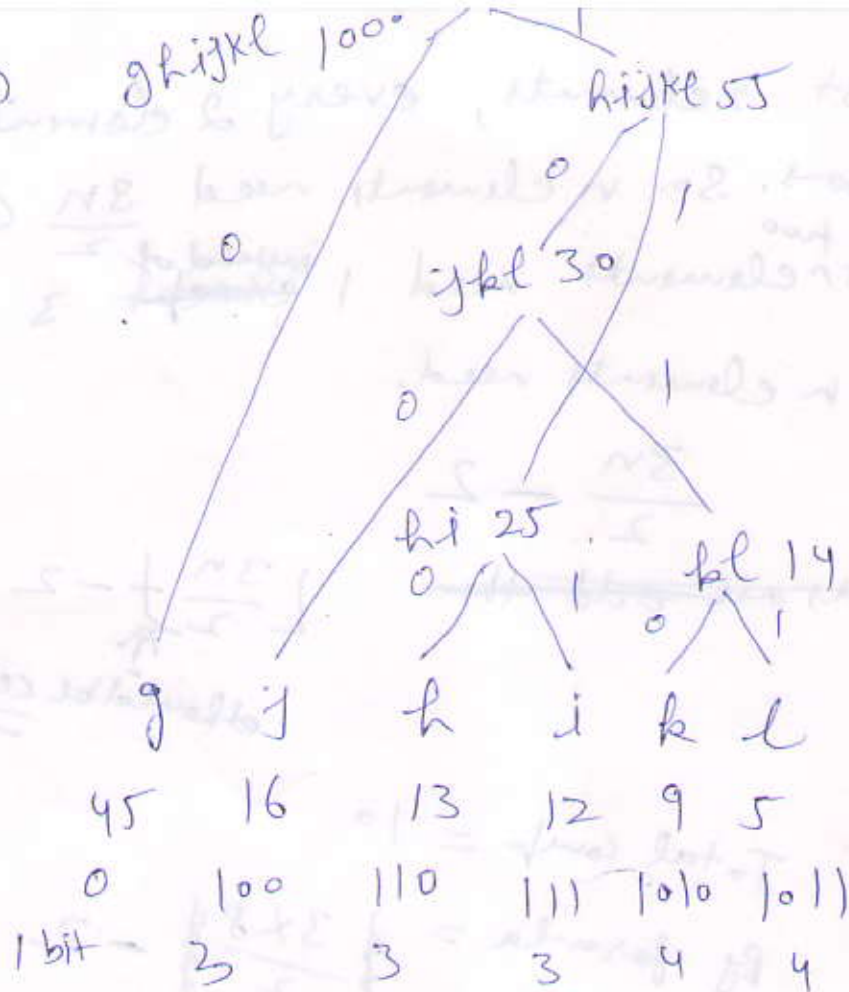 ghijkl 100
1
hijkl 55
0
1
0
ijkl 30
0
1
hi 25
kl 14
0
1
0
1
g j h i k l
45 16 13 12 9 5
0 100 110 111 1010 1011
1 bit 3 3 3 4 4